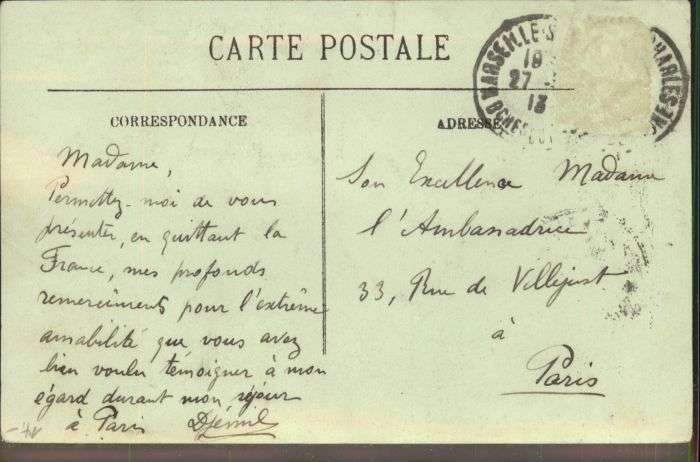 CARTE POSTALE
CORRESPONDANCE
Madame,
Permettez-moi de vous
présenter, en quittant la
France, mes profonds
remerciements pour l'extrême
amabilité que vous avez
bien voulu témoigner à mon
égard durant mon séjour
à Paris Djémil
ADRESSE
Son Excellence Madame
l'Ambassadrice
33, Rue de Villejust
à
Paris
MARSEILLE-S CHARLES
27
13